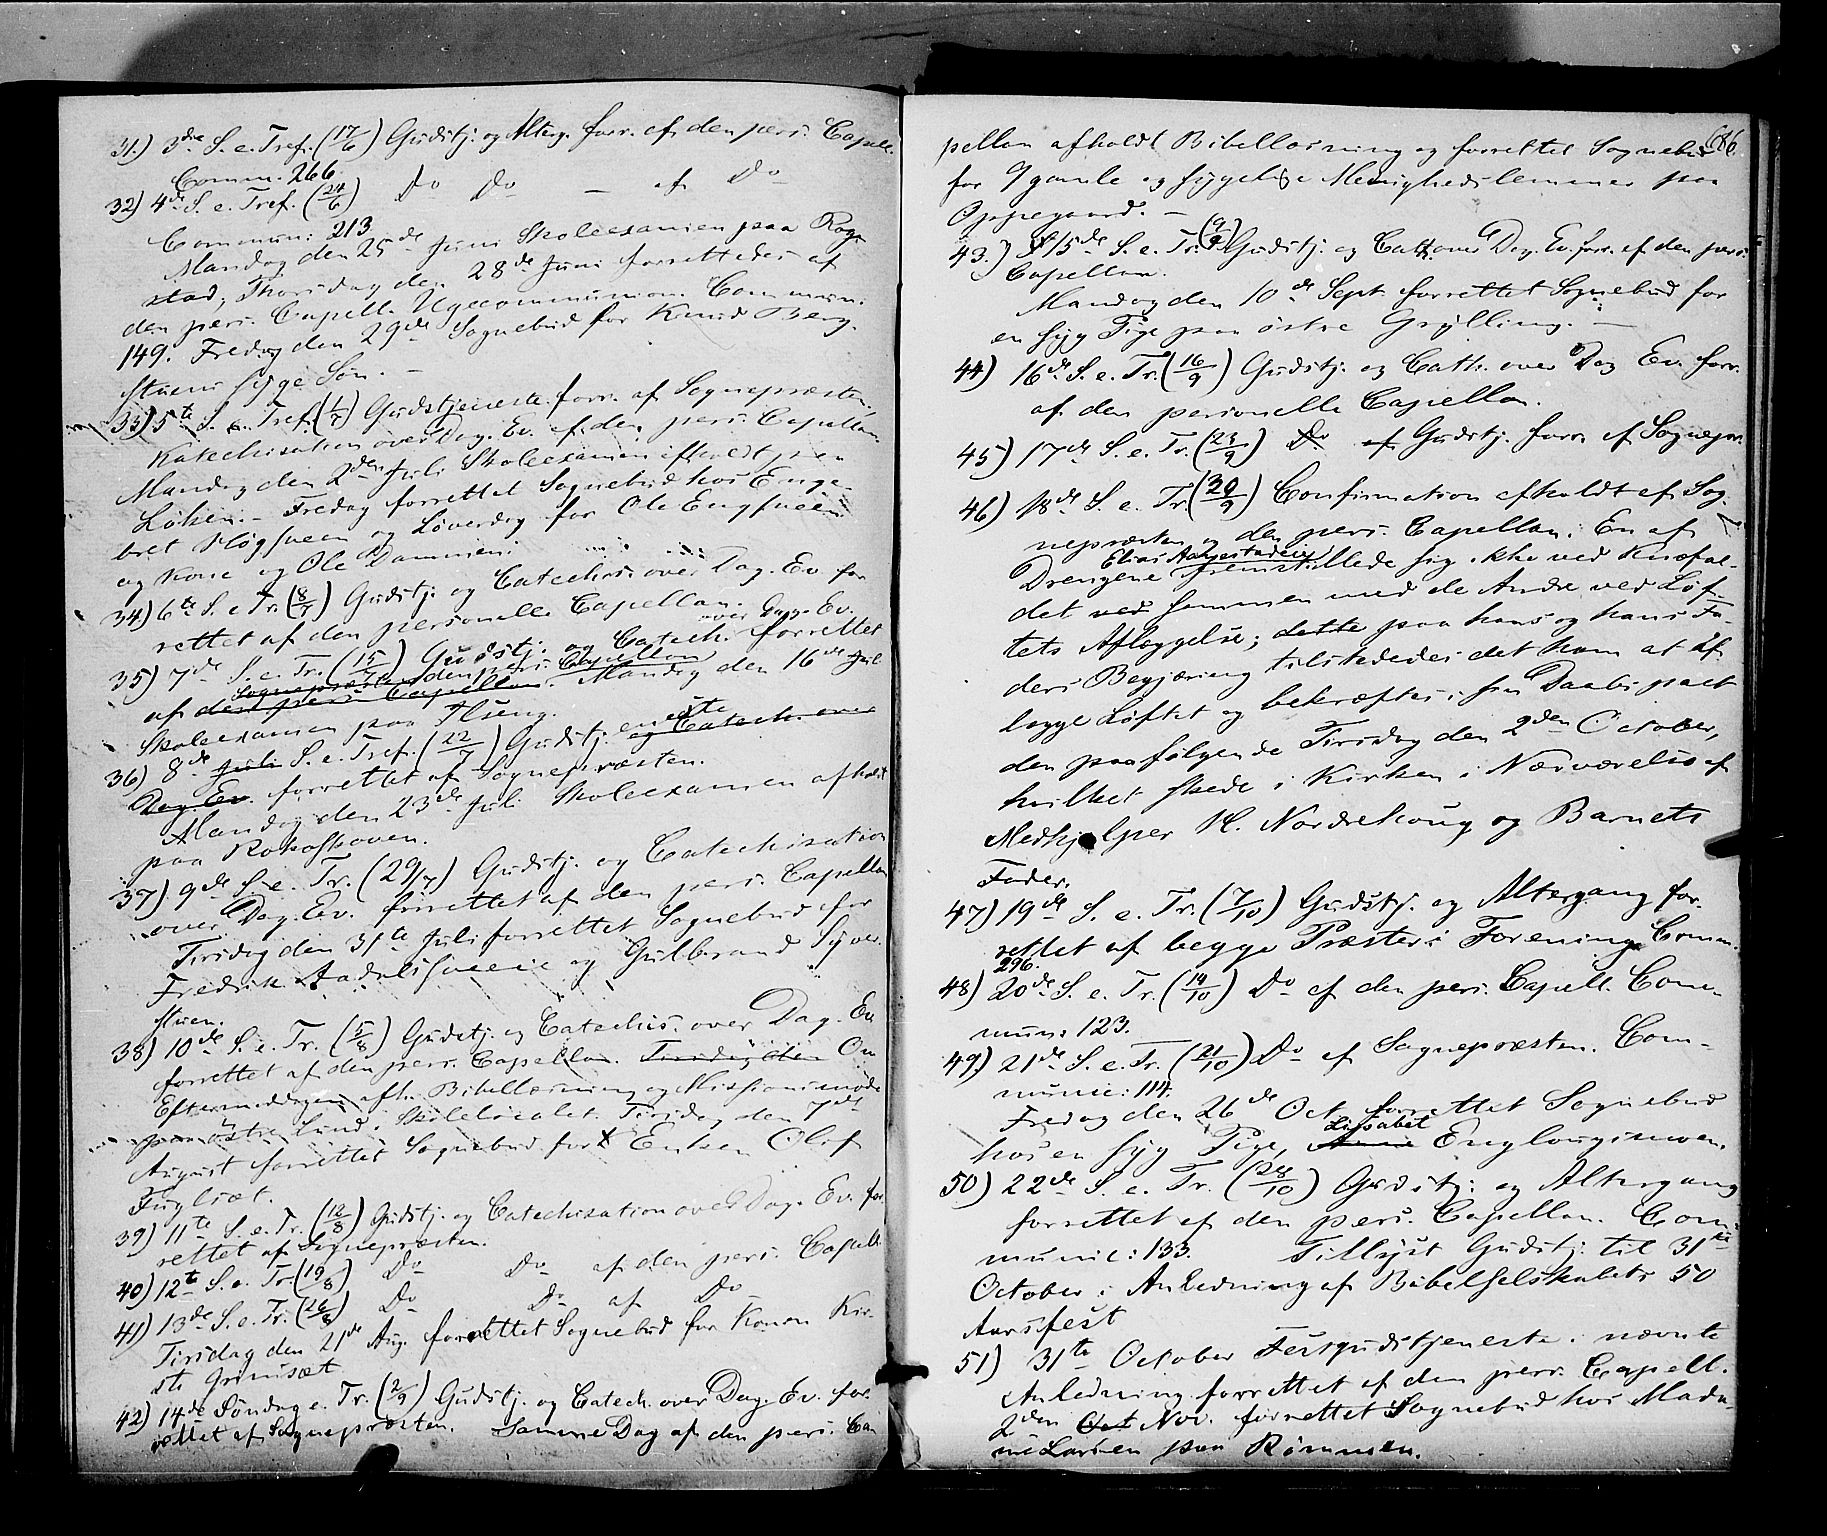 31.) 3die S. e. Tref. (17/6) Gudstj. og Alterg. forr. af den pers. Capell.
Comm. 266.
32) 4de S. e. Tref. (24/6) Do Do — af Do
Commun: 213
Mandag den 25de Juni Skoleexamen paa Rog-
stad, Thorsdag den 28de Juni forrettedes af
den pers. Capell. Ugecommunion. Commun:
149. Fredag den 29de Sognebud for Knud Berg-
stuens syge Søn. —
33) 5te S. e. Tref. (1/7) Gudstjeneste forr. af Sognepræsten,
Katechisation over Dag. Ev. af den pers. Capellan.
Mandag den 2den Juli Skoleexamen afholdt paa
Løken. – Fredag forrettet Sognebud hos Enge-
bret Høgsveen og Løverdag for Ole Engsveen
og Kone og Ole Dammen.
34) 6te S. e. Tr. (8/7) Gudstj. og Catechis. over Dag. Ev. for-
rettet af den personelle Capellan.
over Dag. Ev.
35) 7de S. e. Tr. (15/7) Gudstj. og Catech. forrettet
Sognepræsten den pers. Capellan
af den pers. Capellan. Mandag den 16de Juli
Skoleexamen paa Flseng.
36) 8de Juli S. e. Tref. (22/7) Gudstj. eneste og Catech. over
Dag. Ev. forrettet af Sognepræsten.
Mandag den 23de Juli Skoleexamen afholdt
paa Rokoskoven.
37) 9de S. e. Tr. (29/7) Gudstj. og Catechisation
over Dag. Ev. forrettet af den pers. Capellan
Tirsdag den 31te Juli forrettet Sognebud for
Fredrik Aadalssveen og Gulbrand Syver-
stuen.
38) 10de S. e. Tr. (5/8) Gudstj. og Catechis. over Dag. Ev.
forrettet af den pers. Capellan. Tirsdag den Om
Eftermiddagen afh. Bibellæsning og Missionsmøde
paa østre Lund i Skolelocalet. Tirsdag den 7de
August forrettet Sognebud for Enken Olof
Fuglsæt.
39) 11te S. e. Tr. (12/8) Gudstj. og Catechisation over Dag. Ev. for-
rettet af Sognepræsten.
40) 12te S. e. Tr. (19/8) Do Do af den pers. Capell.
41) 13de S. e. Tr. (26/8) Do Do af Do
Tirsdag den 21de Aug. forrettet Sognebud for Konen Kir-
sti Grimsæt
42) 14de Søndag e. Tr. (2/9) Gudstj. og Catech. over Dag. Ev. for-
rettet af Sognepræsten. Samme Dag af den pers. Ca-
686.
pellan afholdt Bibellæsning og forrettet Sognebud
for 9 gamle og sygelige Menighedslemmer paa
Oppegaard. —
43.) 15de S. e. Tr. (9/9) Gudstj. og Cath. over Dag. Ev. forr. af den pers.
Capellan.
Mandag den 10de Sept. forrettet Sognebud for
en syg Pige paa østre Grylling. —
44) 16de S. e. Tr. (16/9) Gudstj. og Cath. over Dag Ev. forr.
af den personelle Capellan.
45) 17de S. e. Tr. (23/9) Do af Gudstj. forr. af Sognepr.
46) 18de S. e. Tr. (30/9) Confirmation afholdt af Sog-
nepræsten og den pers. Capellan. En af
Elias Aabgestadeie
Drengene fremstillede sig ikke ved Knæfal-
det ved sammen med de Andre ved Løf-
tets Aflæggelse; dette paa hans og hans Fa-
ders Begjæring tilstededes det ham at af-
lægge Løftet og bekræftes i sin Daabspact
den paafølgende Tirsdag den 2den October,
hvilket skede i Kirken i Nærværelse af
Medhjelper H. Nordrehoug og Barnets
Fader.
47) 19de S. e. Tr. (7/10) Gudstj. og Altergang for-
rettet af begge Præster i Forening. Comm.
296.
48) 20de S. e. Tr. (14/10) Do af den pers. Capell. Com-
mun: 123.
49) 21de S. e. Tr. (21/10) Do af Sognepræsten. Com-
munic: 114.
Fredag den 26de Oct. forrettet Sognebud
hos en syg Pige, Anne Lisabet Englougismoen.
50) 22de S. e. Tr. (28/10) Gudstj. og Altergang
forrettet af den pers. Capellan. Com-
munic: 133. Tillyst Gudstj. til 31te
October i Anledning af Bibelselskabets 50
Aarsfest
51) 31te October Festgudstjeneste i nævnte
Anledning forrettet af den pers. Capell.
2den Oct Nov. forrettet Sognebud hos Mada-
me Larsen paa Rømmen.